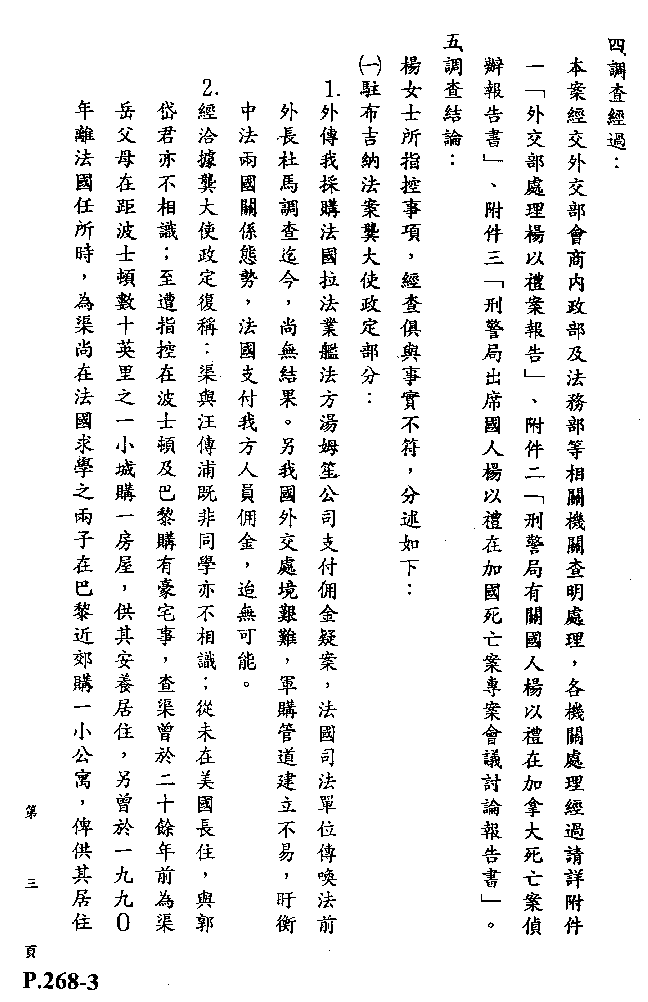 四、調查經過：
本案經交外交部會商內政部及法務部等相關機關查明處理，各機關處理經過請詳附件
一「外交部處理楊以禮案報告」、附件二「刑警局有關國人楊以禮在加拿大死亡案偵
辦報告書」、附件三「刑警局出席國人楊以禮在加國死亡案專案會議討論報告書」。
五、調查結論：
楊女士所指控事項，經查俱與事實不符，分述如下：
㈠駐布吉納法案龔大使政定部分：
1.外傳我採購法國拉法業艦法方湯姆笙公司支付佣金疑案，法國司法單位傳喚法前
外長杜馬調查迄今，尚無結果。另我國外交處境艱難，軍購管道建立不易，盱衡
中法兩國關係態勢，法國支付我方人員佣金，迨無可能。
2.經洽據龔大使政定復稱：渠與汪傳浦既非同學亦不相識；從未在美國長住，與郭
岱君亦不相識；至遭指控在波士頓及巴黎購有豪宅事，查渠曾於二十餘年前為渠
岳父母在距波士頓數十英里之一小城購一房屋，供其安養居住，另曾於一九九０
年離法國任所時，為渠尚在法國求學之兩子在巴黎近郊購一小公寓，俾供其居住
第三頁
P.268-3